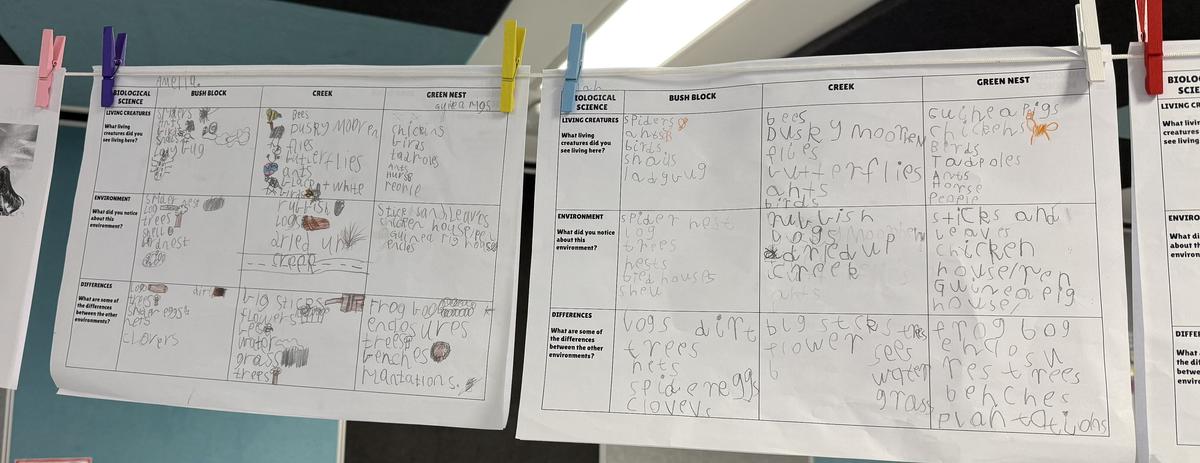 Amelia.
BIOLOGICAL
SCIENCE
BUSH BLOCK
CREEK
GREEN NEST
LIVING CREATURES
What living
creatures did you
see living here?
spiders
ants
ladybug
Bees
Dusky mooren
flies
butterflies
ants
black + white
birds
guinea pigs
chickins
birds
tadpoles
Ants
Hurse
ENVIRONMENT
What did you notice
about this
environment?
spider nest
Log
trees
shell
birdnest
rubbish
Logs
dried up
creek
Sticks and Leaves
chicken house/pe
DIFFERENCES
What are some of
the differences
between the other
environments?
Logs dirt
trees
spider eggs
nets
clovers
big sticks
flowers
bees
water
grass
trees
frog bog
enclosures
trees
benches
Plantations.
ah
BIOLOGICAL
SCIENCE
BUSH BLOCK
CREEK
GREEN NEST
LIVING CREATURES
What living
creatures did you
see living here?
spiders
ants
birds
snails
ladybug
bees
Dusky moorhen
flies
butterflies
ants
birds
Guinea Pigs
chickens
Birds
Tadpoles
Ants
Horse
People
ENVIRONMENT
What did you notice
about this
environment?
spider nest
log
trees
nests
bird houses
shell
rubbish
Logs
dried up
creek
ants
sticks and
Leaves
chicken
house/pen
Guinea pig
house/
DIFFERENCES
What are some of
the differences
between the other
environments?
logs dirt
trees
nets
spider eggs
clovers
big sticks trees
flower sees
b water
grass
frog bog
enclosu
res trees
benches
plantations
BIOLOG
SCIE
LIVING CR
What livi
creature
see livin
ENVIRON
What di
about
enviro
DIFFE
What a
the d
betw
envi